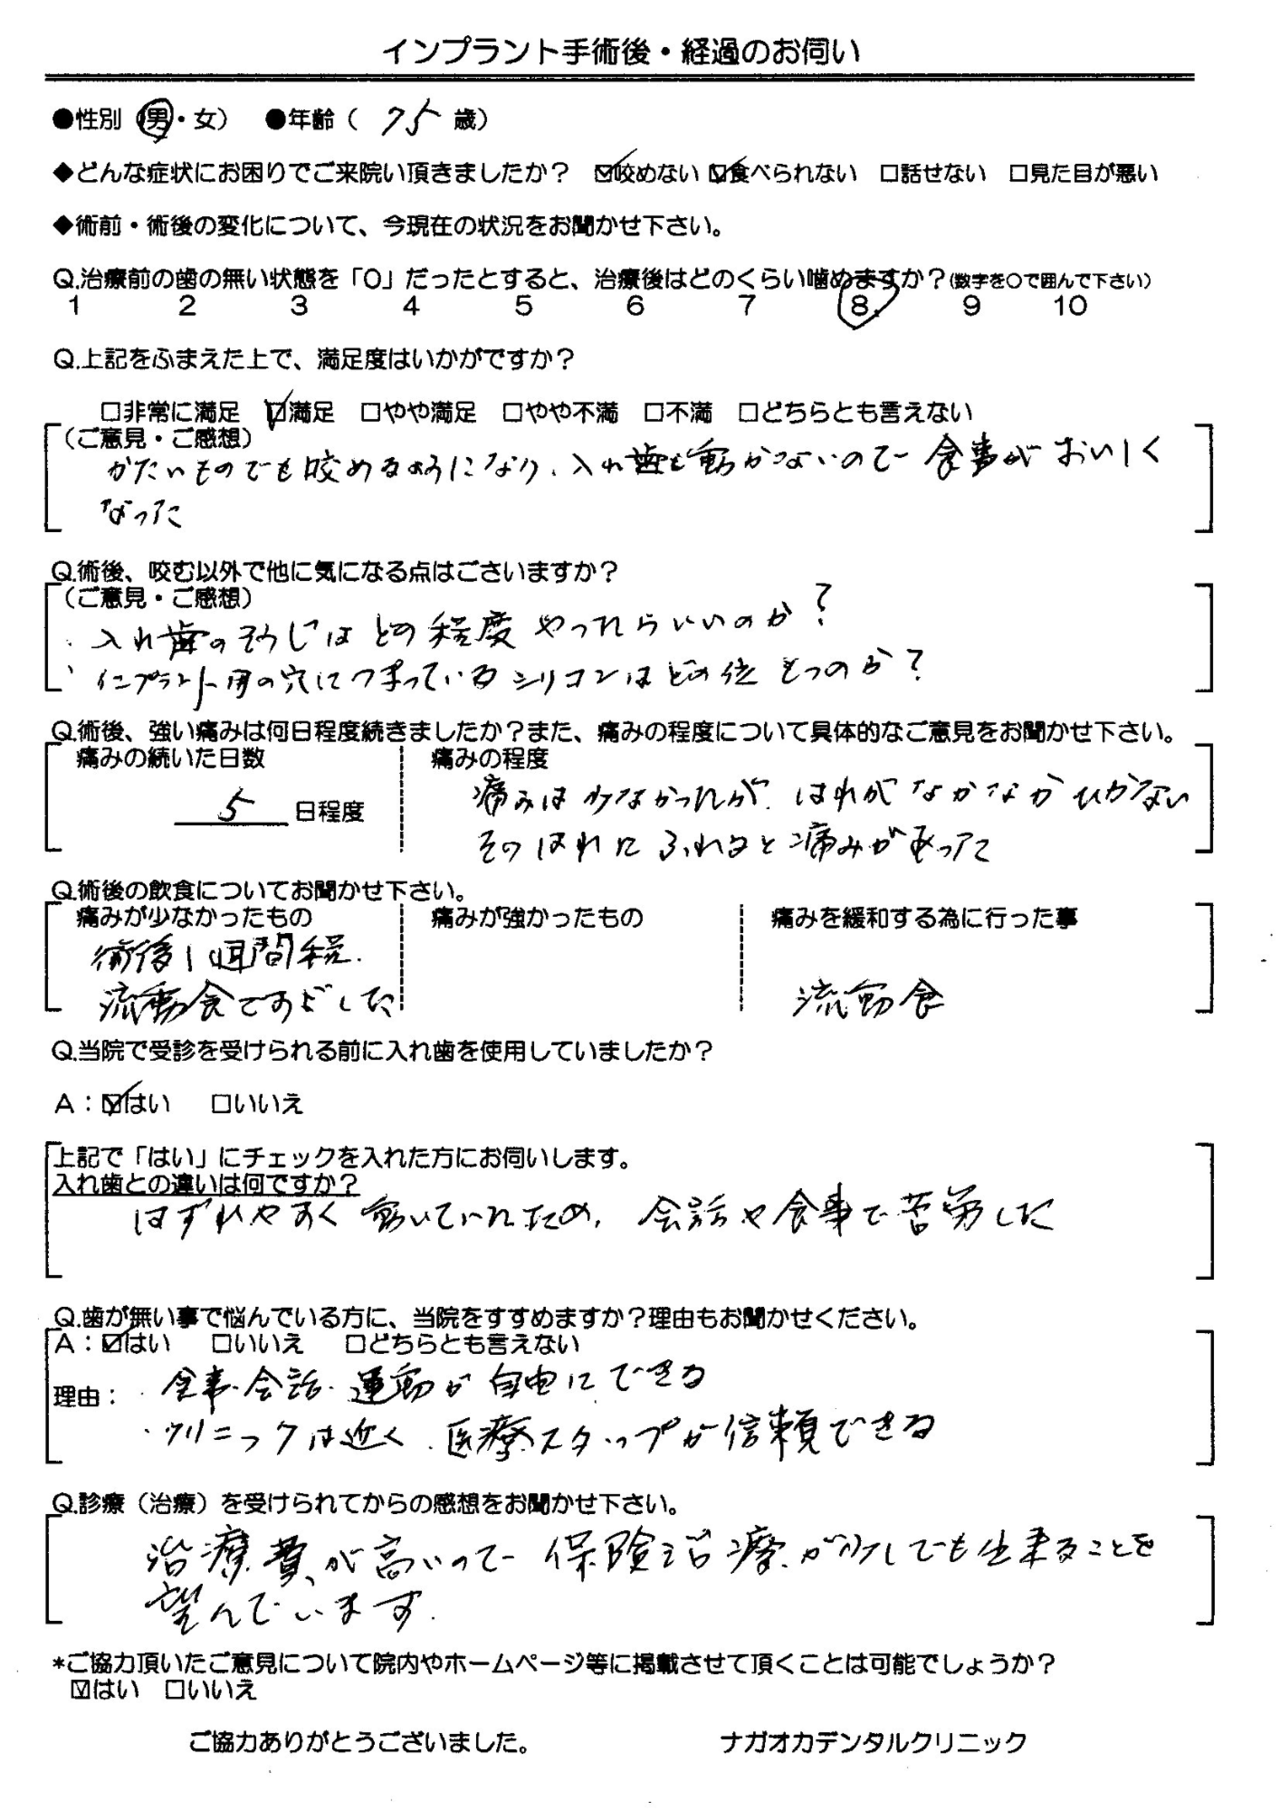 インプラント手術後・経過のお伺い
●性別（男・女）　●年齢（　75　歳）
◆どんな症状にお困りでご来院い頂きましたか？　☑咬めない ☑食べられない　□話せない　□見た目が悪い
◆術前・術後の変化について、今現在の状況をお聞かせ下さい。
Q.治療前の歯の無い状態を「0」だったとすると、治療後はどのくらい噛めますか？(数字を○で囲んで下さい)
1　2　3　4　5　6　7　8　9　10
Q.上記をふまえた上で、満足度はいかがですか？
□非常に満足　☑満足　□やや満足　□やや不満　□不満　□どちらとも言えない
（ご意見・ご感想）
かたいものでも咬めるようになり、入れ歯も動かないので食事がおいしく
なった
Q.術後、咬む以外で他に気になる点はございますか？
（ご意見・ご感想）
・入れ歯のそうじはどの程度やったらいいのか？
・インプラント用の穴につまっているシリコンはどの位もつのか？
Q.術後、強い痛みは何日程度続きましたか？また、痛みの程度について具体的なご意見をお聞かせ下さい。
痛みの続いた日数　痛みの程度
5 日程度
痛みは少なかったが、はれがなかなかひかない
そのはれにふれると痛みがあった
Q.術後の飲食についてお聞かせ下さい。
痛みが少なかったもの　痛みが強かったもの　痛みを緩和する為に行った事
術後1週間程、
流動食ですごした　流動食
Q.当院で受診を受けられる前に入れ歯を使用していましたか？
A：☑はい　□いいえ
上記で「はい」にチェックを入れた方にお伺いします。
入れ歯との違いは何ですか？
はずれやすく動いていたため、会話や食事で苦労した
Q.歯が無い事で悩んでいる方に、当院をすすめますか？理由もお聞かせください。
A：☑はい　□いいえ　□どちらとも言えない
理由：・食事・会話・運動が自由にできる
・クリニックは近く、医療スタッフが信頼できる
Q.診療（治療）を受けられてからの感想をお聞かせ下さい。
治療費が高いので保険治療が少しでも出来ることを
望んでいます。
*ご協力頂いたご意見について院内やホームページ等に掲載させて頂くことは可能でしょうか？
☑はい　□いいえ
ご協力ありがとうございました。　ナガオカデンタルクリニック